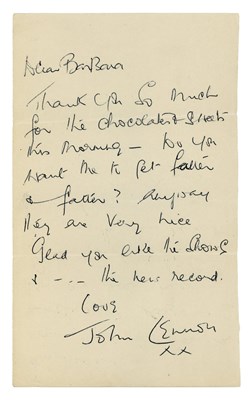 Dear Barbara
Thank You So Much
for the chocolates & sweets
this morning – Do you
want me to get fatter
& fatter? Anyway
they are very nice
Glad you like the shows
& --- the new record.
Love
John Lennon
xx